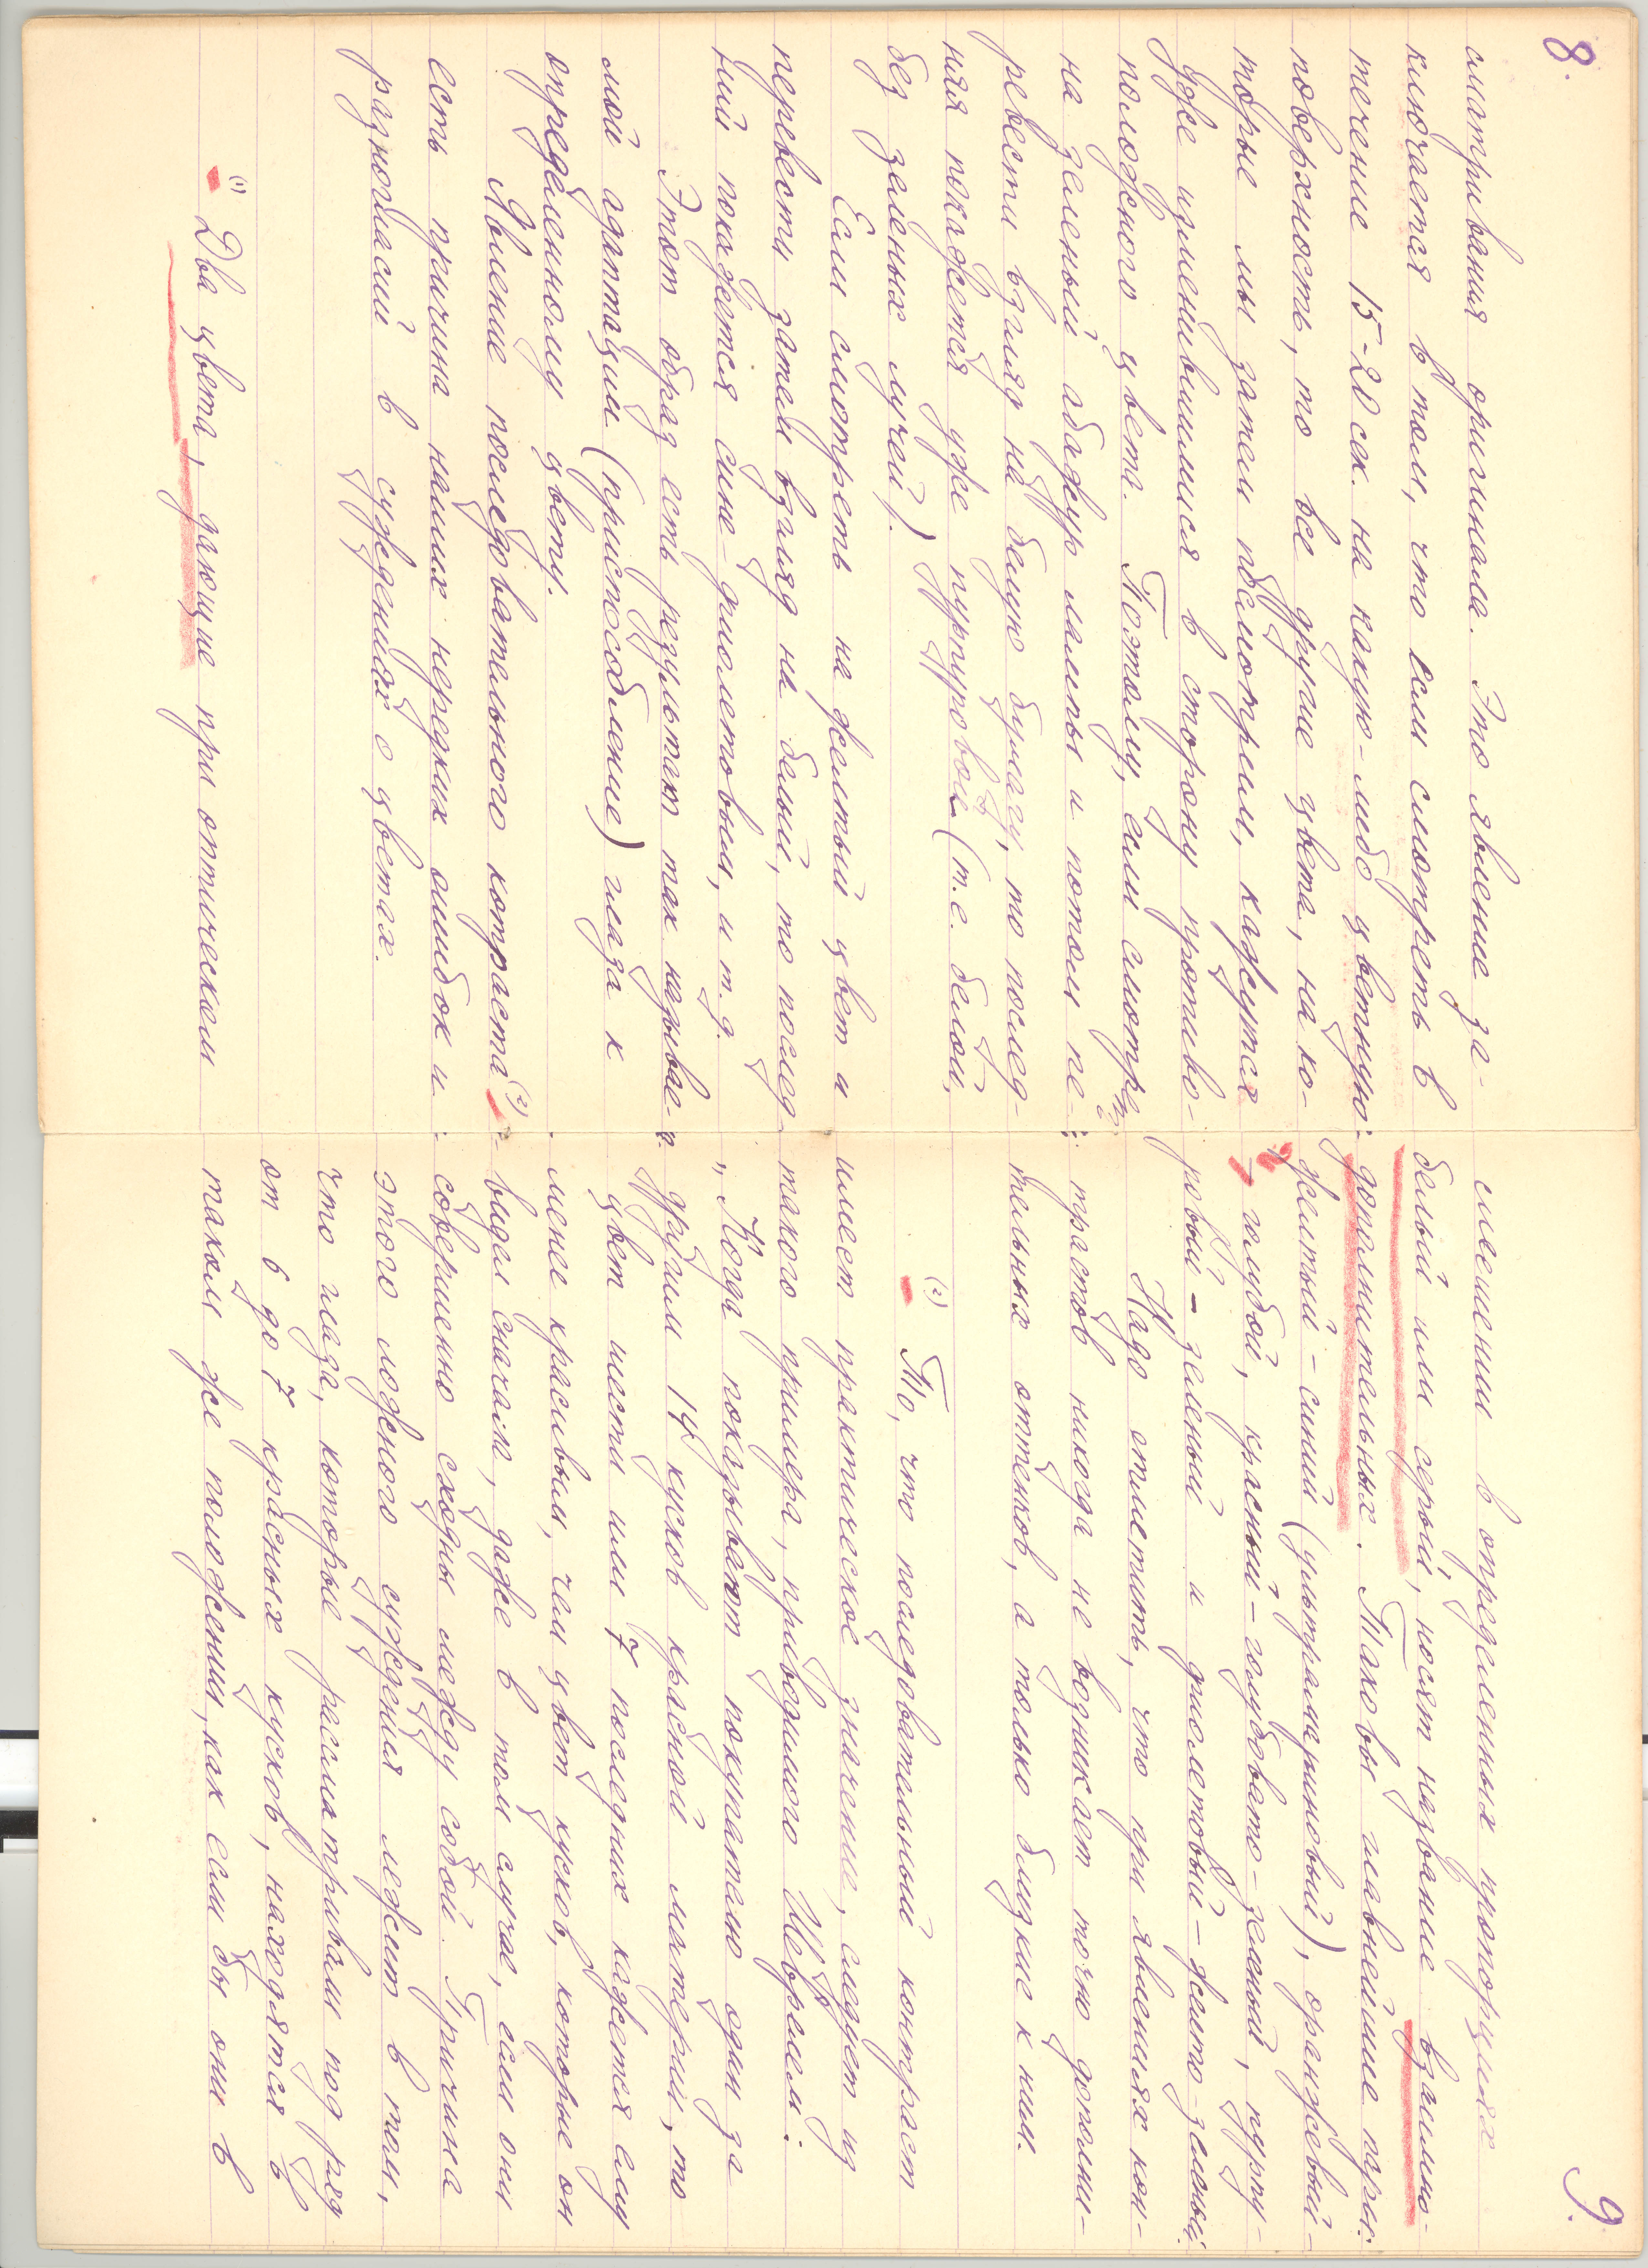 8.
сматривания оригинала. Это явление за-
ключается в том, что если смотреть в
течение 15-20 сек. на какую-либо цветную
поверхность, то все другие цвета, на ко-
торые мы затем посмотрим, кажутся
уже изменившимися в сторону противо-
положного цвета. Поэтому, если смотреть
на зеленый абажур лампы и потом пе-
ревести взгляд на белую бумагу, то послед-
няя покажется уже пурпуровой (т.е. белой,
без зеленых лучей).
Если смотреть на желтый цвет и
перевести затем взгляд на белый, то послед-
ний покажется сине-фиолетовым, и т.д.
Этот образ есть результат так называе-
мой адаптации (приспособление) глаза к
определенному цвету.
Явление последовательного контраста (2)
есть причина наших нередких ошибок и
разногласий в суждениях о цветах.
(1) Два цвета, дающие при оптическом
9.
смешении в определенных пропорциях
белый или серый, носят название взаимно-
дополнительных. Таковы главнейшие пары:
желтый - синий (ультрамариновый), оранжевый -
голубой, красный - голубовато-зеленый, пурпу-
ровый - зеленый и фиолетовый - желто-зеленый.
Надо отметить, что при явлениях кон-
трастов никогда не возникает точно дополни-
тельных оттенков, а только близкие к ним.
(2) То, что последовательный контраст
имеет практическое значение, следует из
такого примера, приводимого Шеврелем:
„Когда показывают покупателю один за
другим 14 кусков красной материи, то
цвет шести или 7 последних кажется ему
менее красивым, чем цвет кусков, которые он
видел сначала, даже в том случае, если они
совершенно сходны между собой. Причина
этого ложного суждения лежит в том,
что глаза, которые рассматривали подряд
от 6 до 7 красных кусков, находятся в
таком же положении, как если бы они в